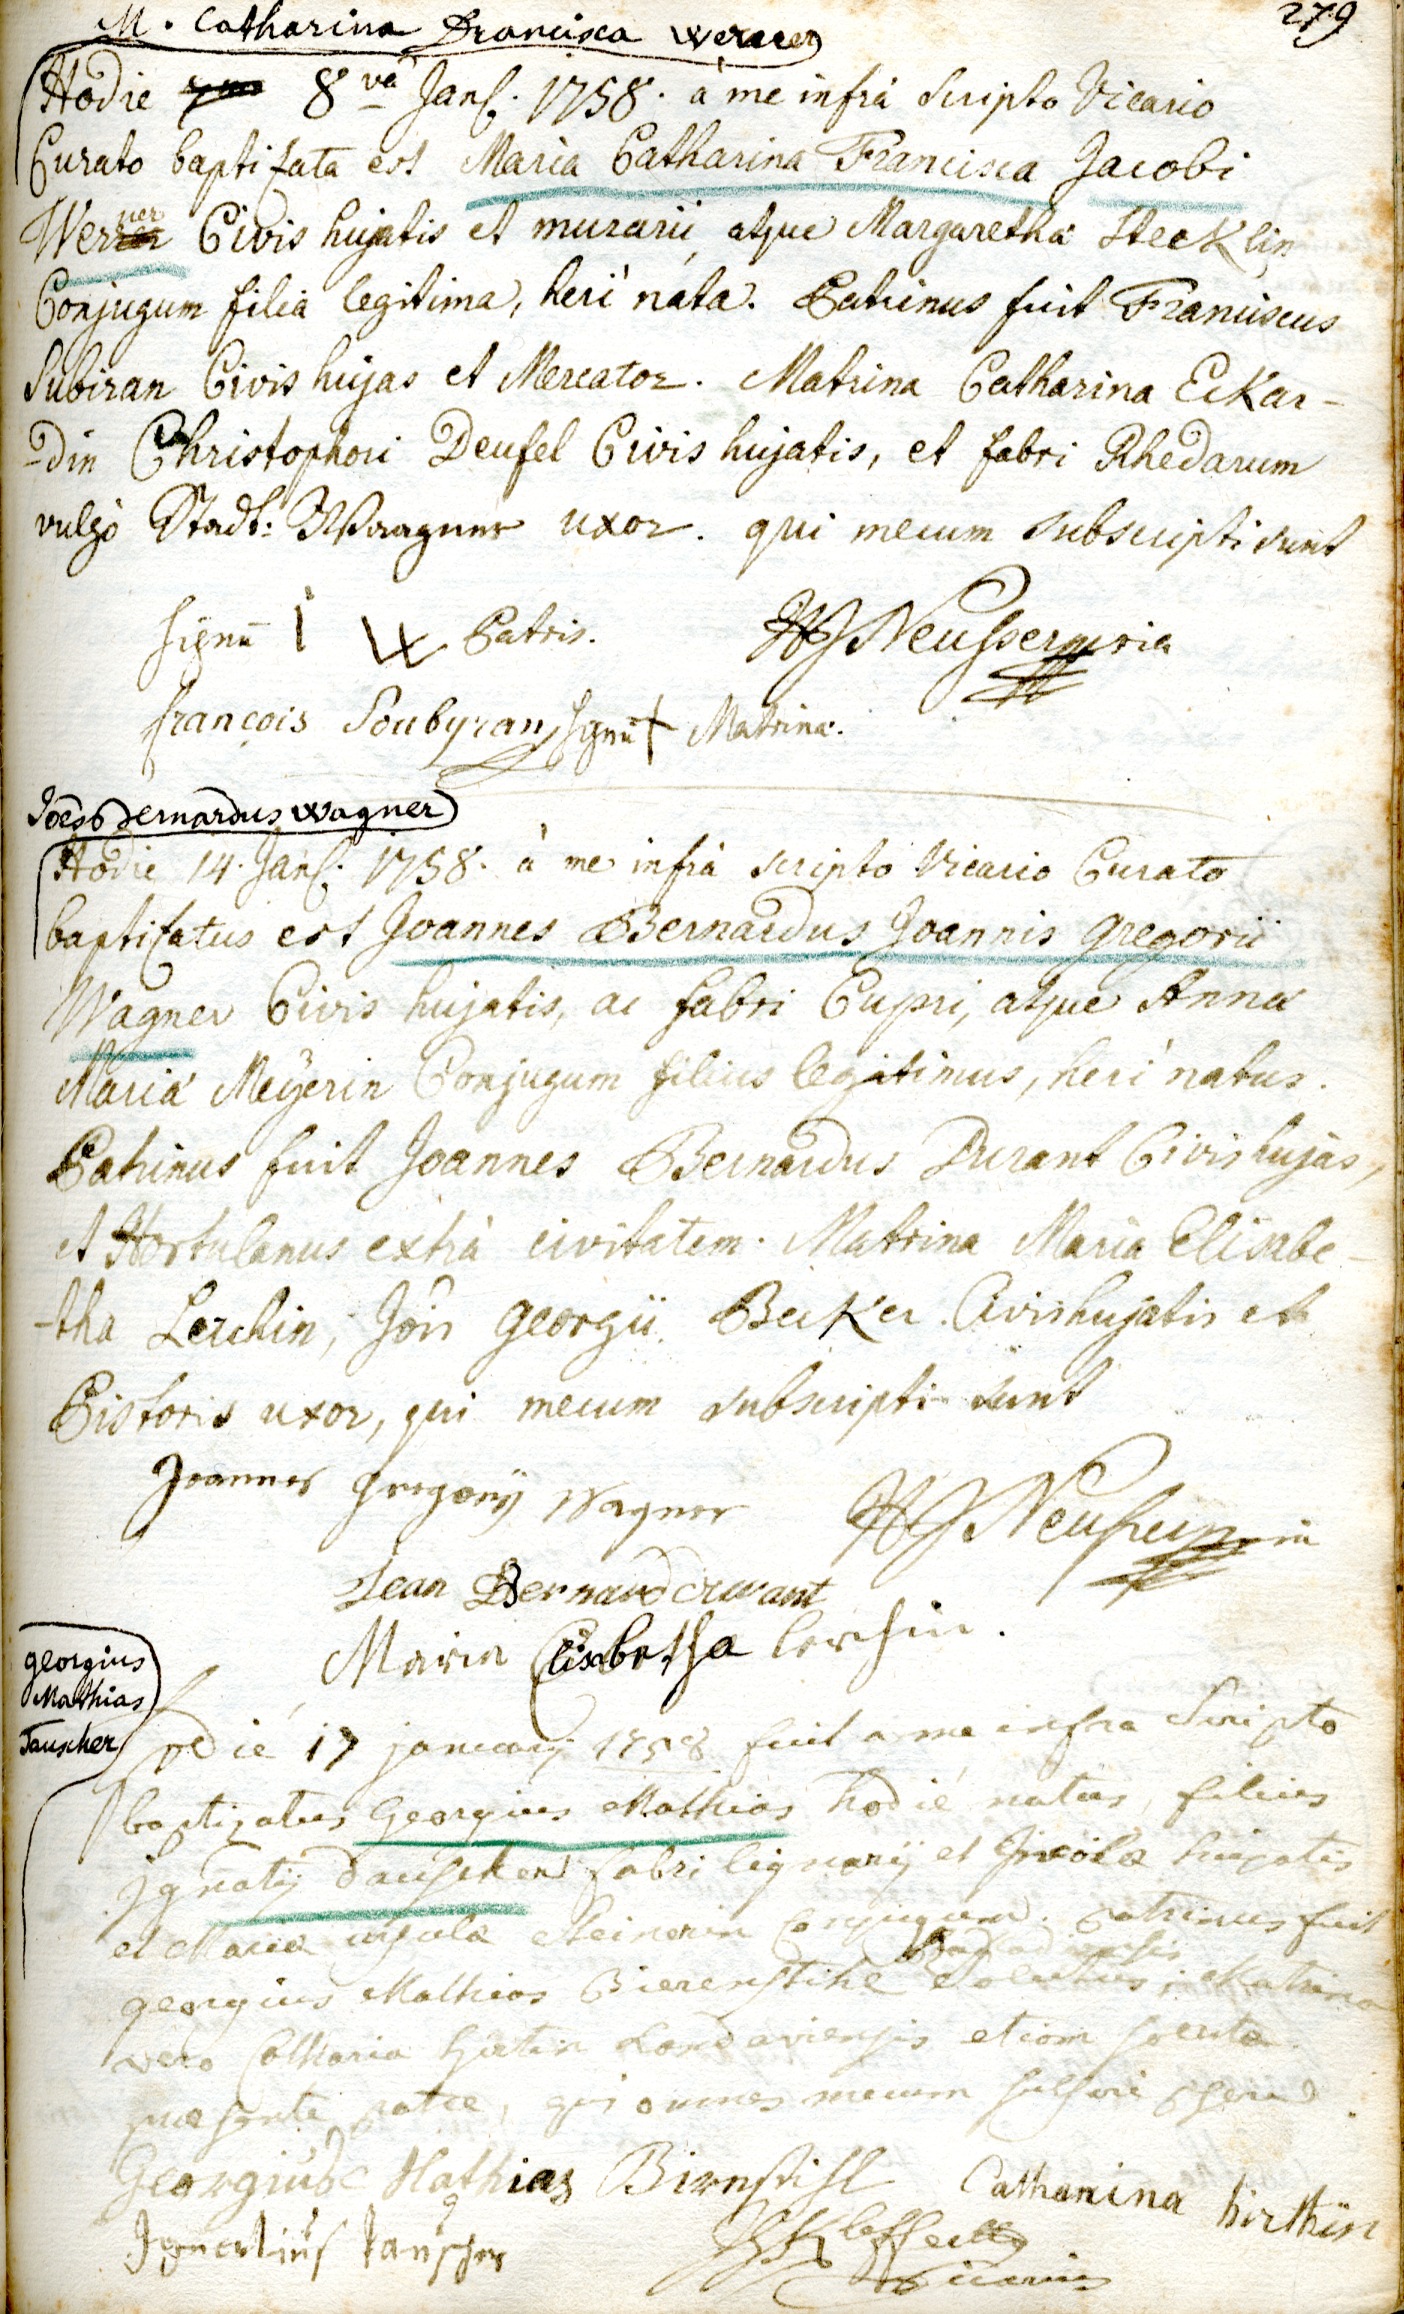 279
M. Catharina Francisca Werner
Hodie 8va Janȷ. 1758. à me infrà scripto Vicario
Curato baptisata est Maria Catharina Francisca Jacobi
Werner Civis hujatis et murarii, atque Margaretha Stecklin
Conjugum filia legitima, heri nata. Patrinus fuit Franciscus
Subiran Civis hujas et Mercator. Matrina Catharina Eckar-
-din Christophori Deufel Civis hujatis, et fabri Rhedarum
vulgò Stadt: Wagner uxor. qui mecum subscripti sunt
signū Patris. Neusser
françois Soubyran, signū + Matrina.
Joes Bernardus Wagner
Hodie 14. Janȷ. 1758. à me infrà scripto Vicario Curato
baptisatus est Joannes Bernardus Joannis Gregorii
Wagner Civis hujatis, ac fabri Cupri, atque Anna
Maria Meÿerin Conjugum filius legitimus, heri natus.
Patrinus fuit Joannes Bernardus Durant Civis hujas,
et Hortulanus extrà civitatem. Matrina Maria Elisabe-
-tha Lerchin, Jōis Georgii Becker Civis hujatis et
Pistoris uxor, qui mecum subscripti sunt
Joannes Gregorÿ Wagner
Jean Bernard durant
Maria Elisabetha lerchin.
georgius
Mathias
Tauscher
hodié 17 januarÿ 1758 fuit a me infra Scripto
baptizatus Georgius Mathias hodié natus, filius
Ignatÿ Dauscher fabri lignarÿ et Incolæ hujatis
et Maria ursula Steinerin conjugum. patrinus fuit
georgius Mathias Bierenstihl solutus; Matrina
vero Catharia hirtin Landaviensis etiam soluta
præsente patre, qui omnes mecum
Georgius Mathias Birnstihl Catharina hirthin
Ignatius Tauscher
Vicarius